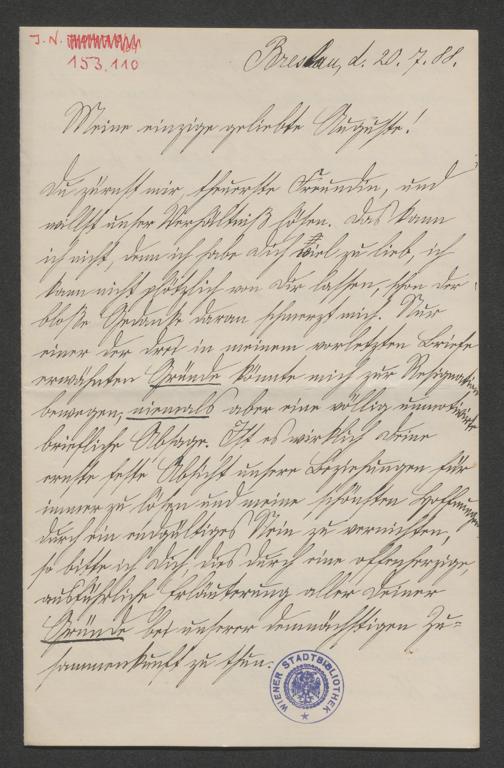 J. N.
153.110
Breslau, d. 20. 7. 88.
Meine einzige geliebte Auguste!
Du zürnst mir, theuerste Freundin, und
willst unser Verhältniß lösen. Das kann
ich nicht, denn ich habe Dich viel zu lieb, ich
kann nicht plötzlich von Dir lassen, schon der
bloße Gedanke daran schmerzt mich. Nur
einer der drei in meinem vorletzten Briefe
erwähnten Gründe könnte mich zur Resignation
bewegen, niemals aber eine völlig unmotivirte
briefliche Absage. Ist es wirklich Deine
ernste feste Absicht unsere Beziehungen für
immer zu lösen und meine schönsten Hoffnungen
durch ein endgültiges Nein zu vernichten,
so bitte ich Dich, dies durch eine offenherzige,
ausführliche Erläuterung aller Deiner
Gründe bei unserer demnächstigen Zu=
sammenkunft zu thun.
WIENER STADTBIBLIOTHEK